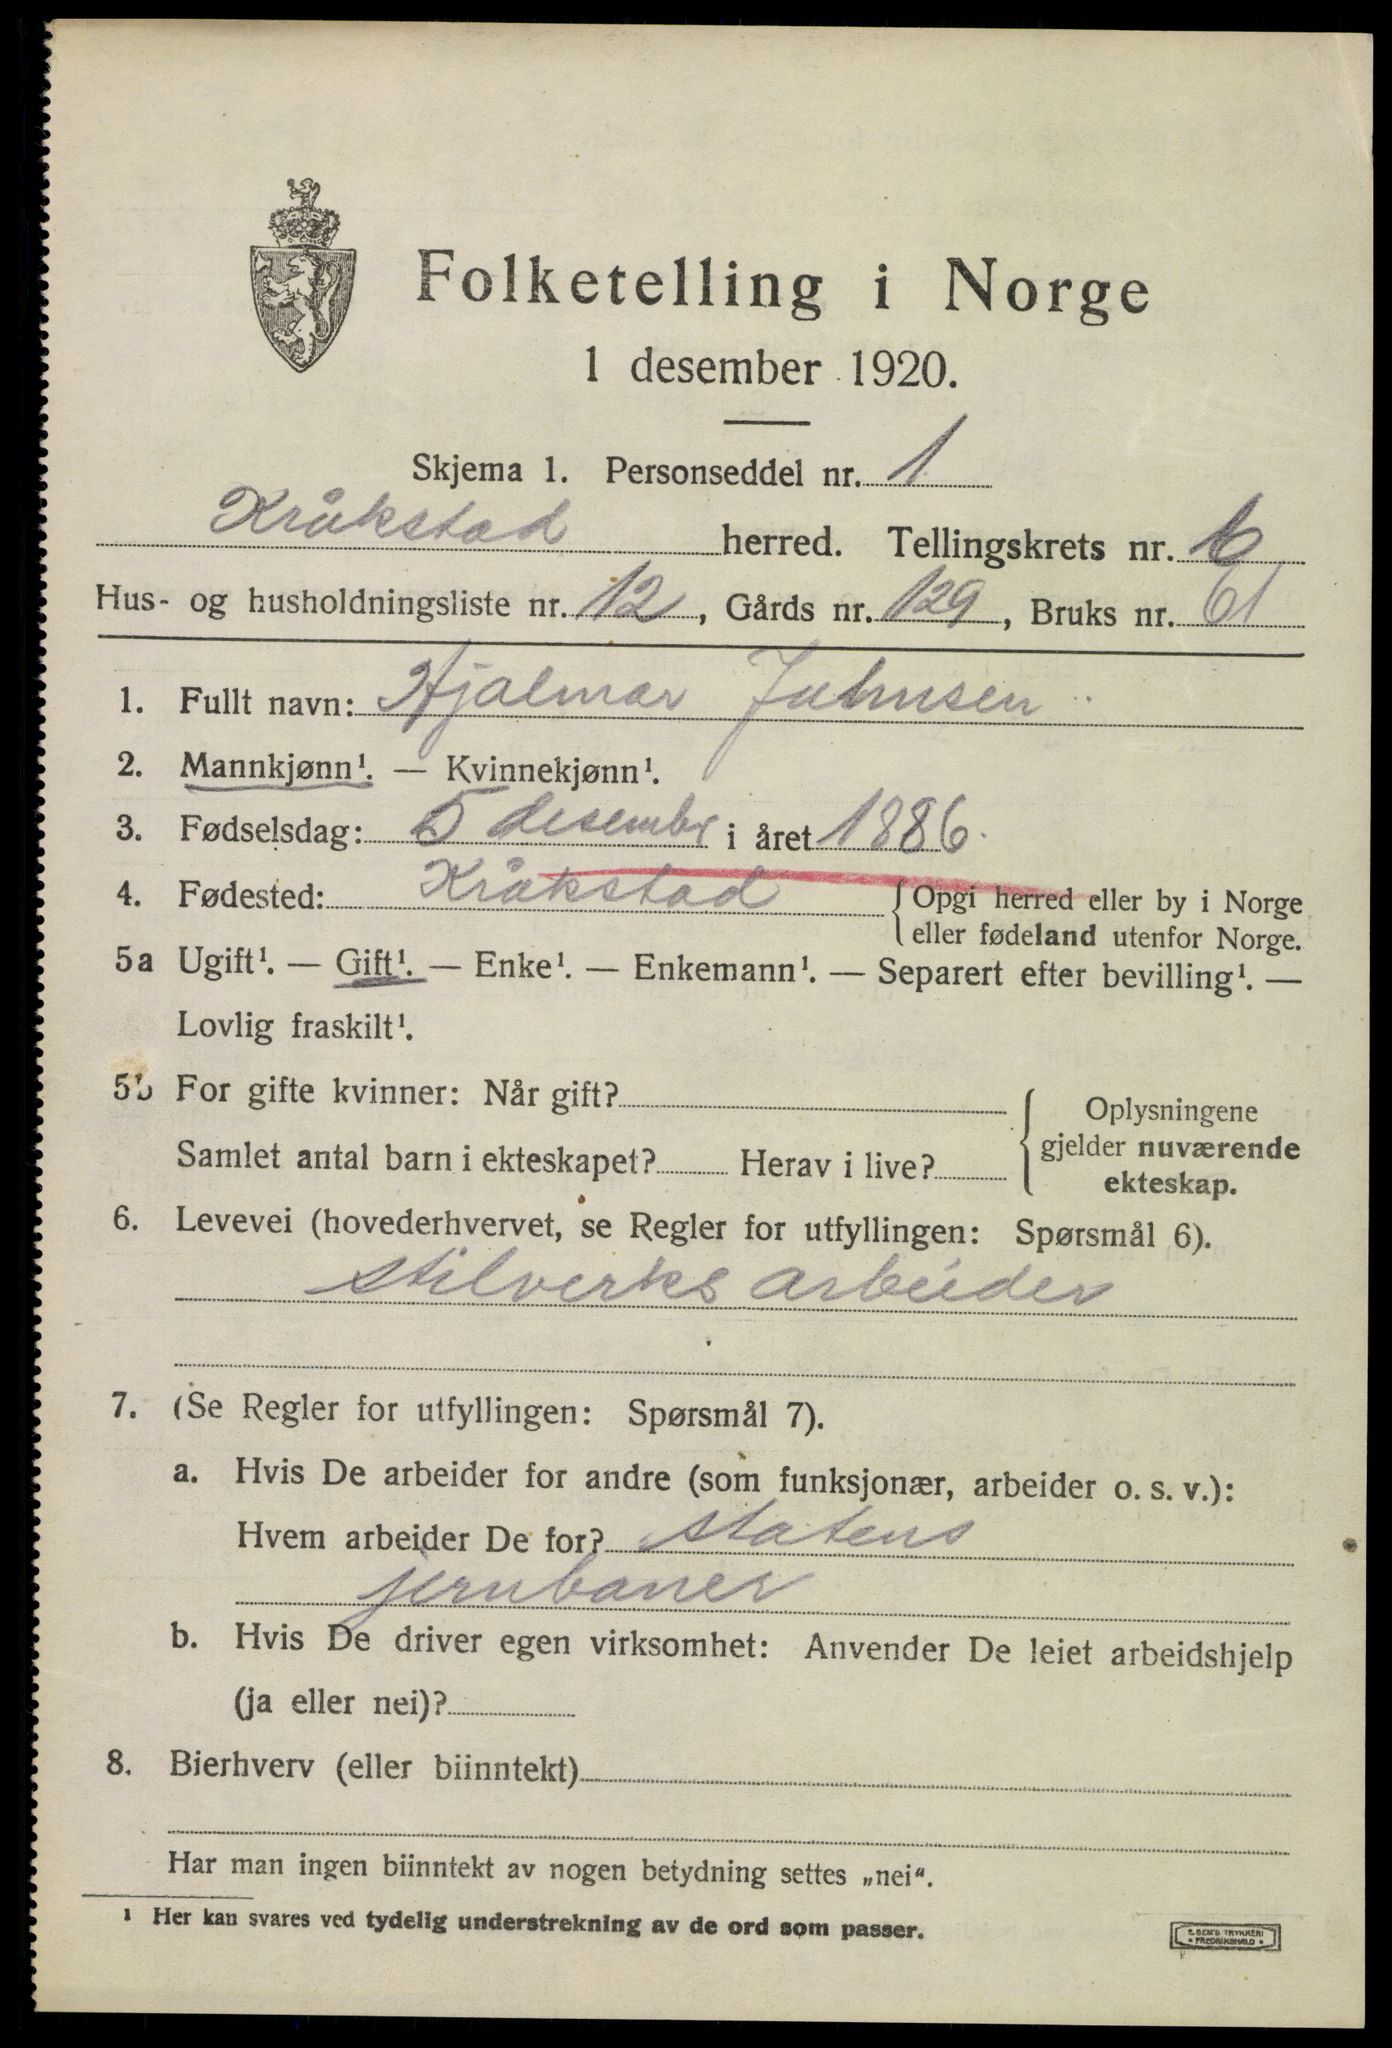 Folketelling i Norge
1 desember 1920.
Skjema 1. Personseddel nr. 1
Kråkstad herred. Tellingskrets nr. 6
Hus- og husholdningsliste nr. 12, Gårds nr. 129, Bruks nr. 61
1. Fullt navn: Hjalmar Johnsen
2. Mannkjønn¹. — Kvinnekjønn¹.
3. Fødselsdag: 5 desember i året 1886.
4. Fødested: Kråkstad { Opgi herred eller by i Norge
eller fødeland utenfor Norge.
5a Ugift¹. — Gift¹. — Enke¹. — Enkemann¹. — Separert efter bevilling¹. —
Lovlig fraskilt¹.
5b For gifte kvinner: Når gift?
Samlet antal barn i ekteskapet? Herav i live?
{ Oplysningene
gjelder nuværende
ekteskap.
6. Levevei (hovederhvervet, se Regler for utfyllingen: Spørsmål 6).
stilverks arbeider
7. (Se Regler for utfyllingen: Spørsmål 7).
a. Hvis De arbeider for andre (som funksjonær, arbeider o. s. v.):
Hvem arbeider De for? statens
jernbaner
b. Hvis De driver egen virksomhet: Anvender De leiet arbeidshjelp
(ja eller nei)?
8. Bierhverv (eller biinntekt)
Har man ingen biinntekt av nogen betydning settes „nei“.
¹ Her kan svares ved tydelig understrekning av de ord som passer.
E. SEM'S TRYKKERI
• FREDRIKSHALD •